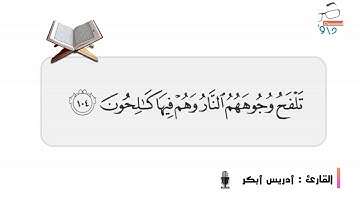 داو
تَلْفَحُ وُجُوهَهُمُ ٱلنَّارُ وَهُمْ فِيهَا كَٰلِحُونَ ١٠٤
القارئ : إدريس أبكر